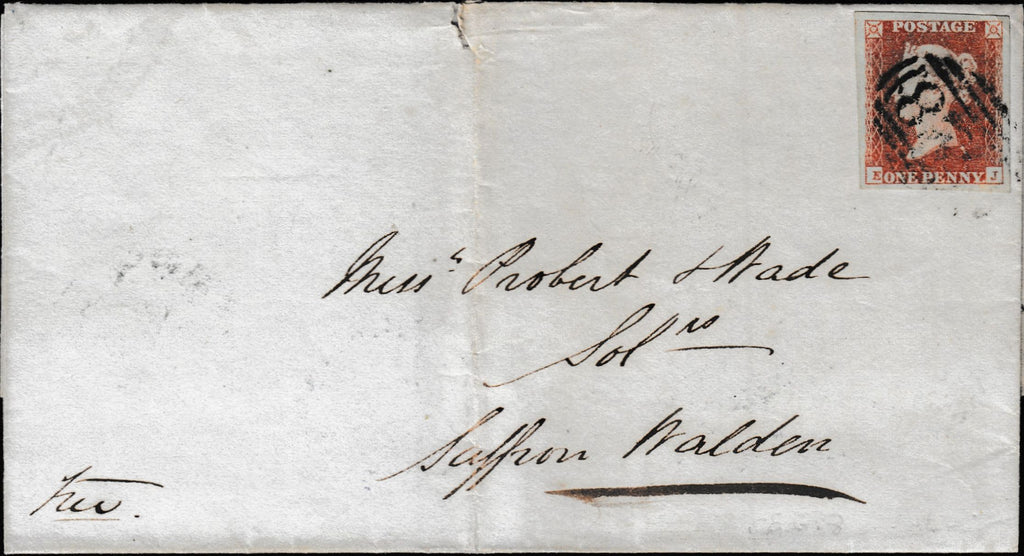 POSTAGE
E ONE PENNY J
Mess^rs Probert & Wade
Sol^rs
Saffron Walden
Free.